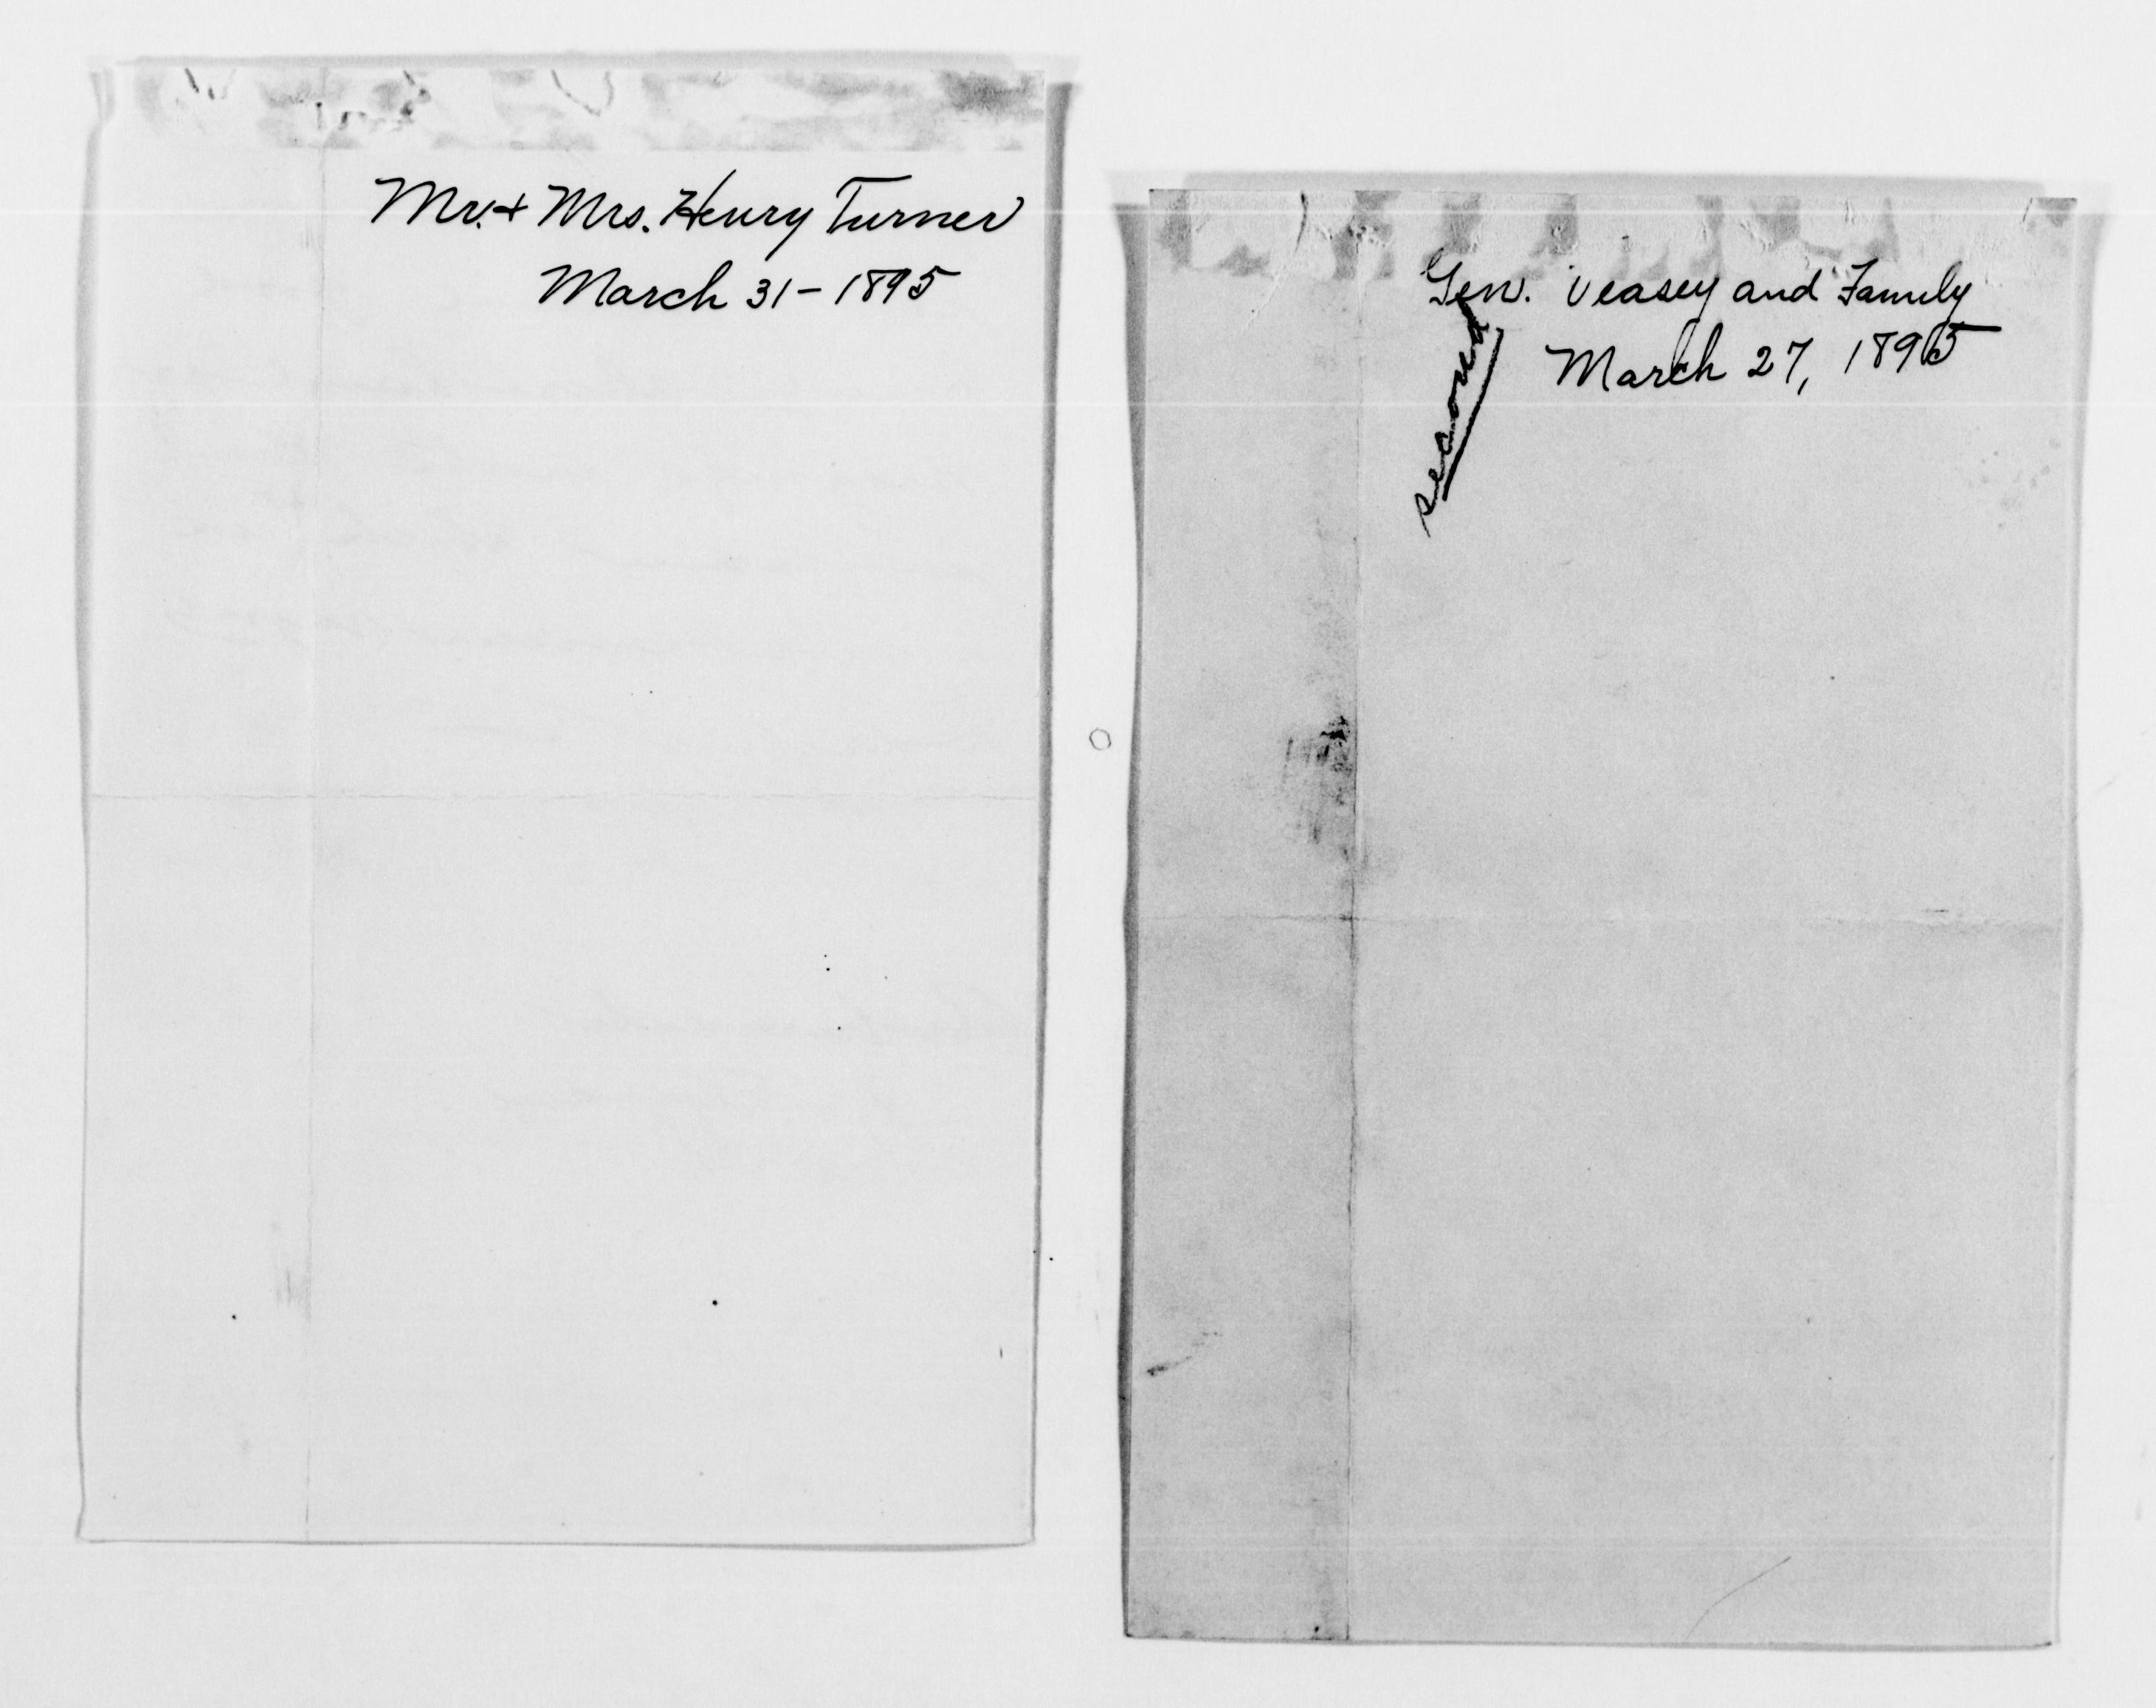 Mr. + Mrs. Henry Turner
March 31 - 1895
Gen. Veasey and Family
March 27, 1895
second